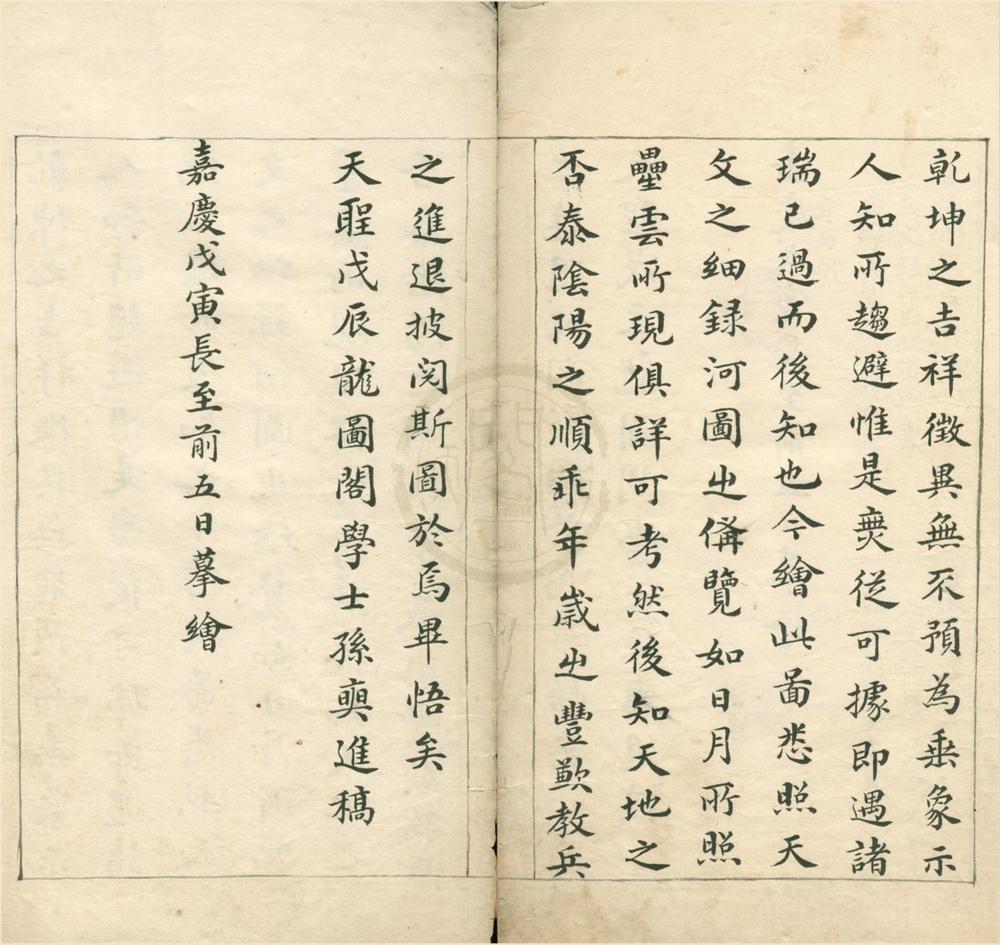 乾坤之吉祥徵異無不預為垂象示
人知所趨避惟是爽従可據即遇諸
瑞已過而後知也今繪此畵悉照天
文之細録河圖㞢俻覽如日月所照
壘雲所現俱詳可考然後知天地之
否泰陰陽之順乖年歲㞢豐歉教兵
之進退披閱斯圖於焉畢悟矣
天聖戊辰龍圖閣學士孫奭進稿
嘉慶戊寅長至前五日摹繪